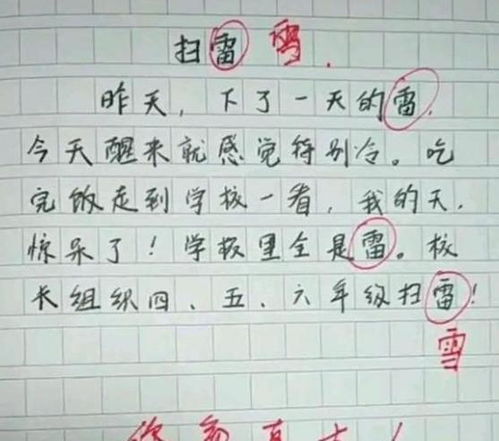 扫雷 雪
昨天，下了一天的雷，
今天醒来就感觉特别冷。吃
完饭走到学校一看，我的天，
惊呆了！学校里全是雷。校
长组织四、五、六年级扫雷！
雪